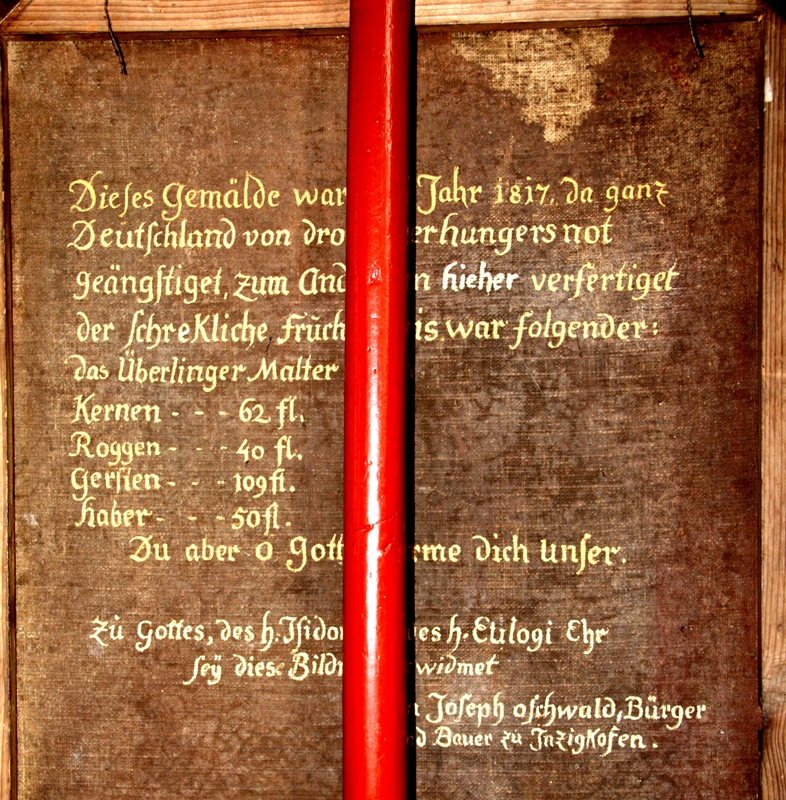 Dieses Gemälde war Jahr 1817, da ganz
Deutschland von dro erhungers not
geängstiget, zum And n hieher verfertiget
der schrekliche, früch is war folgender:
das Überlinger Malter
Kernen - - - 62 fl.
Roggen - - - 40 fl.
Gersten - - - 109 fl.
haber - - - 50 fl.
Du aber O Gott rme dich unser.
Zů Gottes, des h. Isidor des h. Eulogi Ehr
seÿ diese Bildn widmet
n Joseph oschwald, Bürger
nd Bauer zu Inzigkofen.